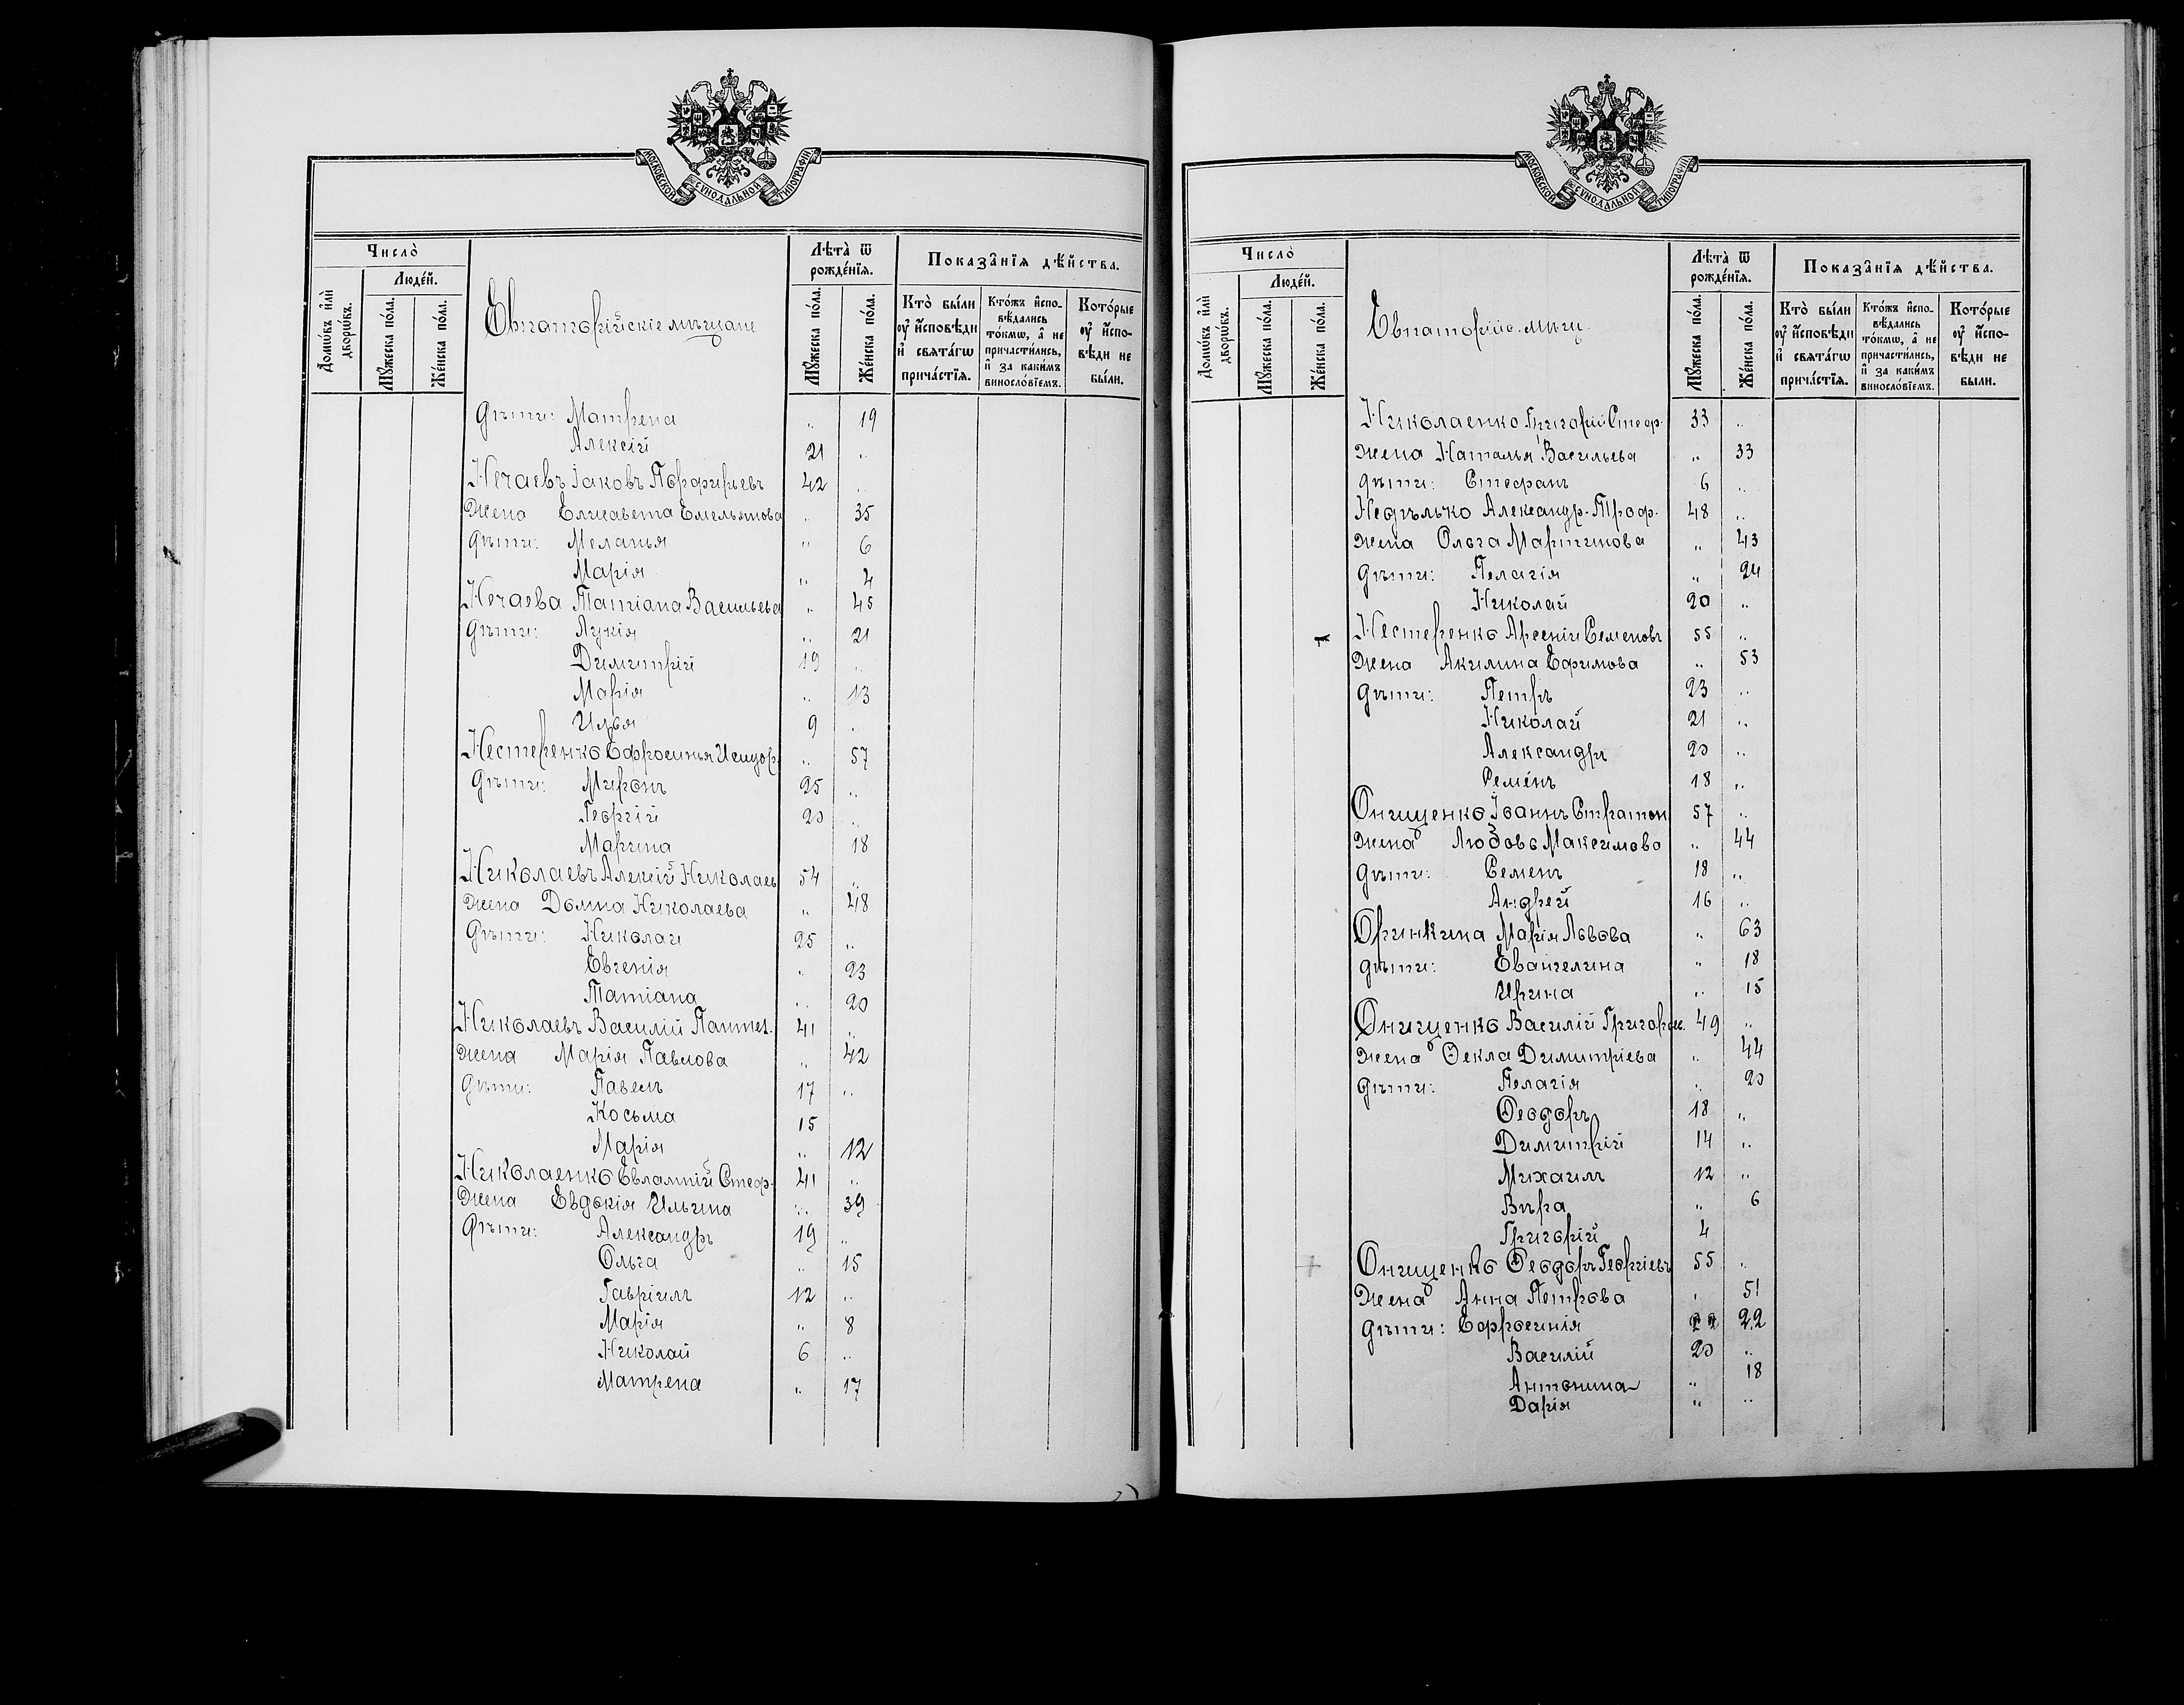 МОСКОВСКОЙ СѴНОДАЛЬНОЙ ТИПОГРАФІИ
Число̀
Люде́й.
Домѡ́въ и҆лѝ дворѡ́въ.
Мꙋ́жеска по́ла.
Же́нска по́ла.
Евпаторійскіе мѣщане
Лѣта̀ ѿ рожде́нїѧ.
Мꙋ́жеска по́ла.
Же́нска по́ла.
Показа̑нїѧ дѣ́йства.
Кто̀ бы́ли ᲂу҆ и҆сповѣ́ди и҆ свѧта́гѡ прича́стїѧ.
Кто́жъ и҆спо-вѣ́дались то́кмѡ, а҆ не причасти́лись, и҆ за каки́мъ винослᲂ́вїемъ.
Кото́рые ᲂу҆ и҆спо-вѣ́ди не бы́ли.
дѣти: Матрена „ 19
Алексій 21 „
Нечаевъ Іаковъ Порфирьевъ 42 „
Жена Елисавета Емельянова „ 35
дѣти: Меланья „ 6
Марія „ 4
Нечаева Татіана Васильева „ 45
дѣти: Лукія „ 21
Димитрій 19 „
Марія „ 13
Илья 9 „
Нестеренко Ефросинья Исидор. „ 57
дѣти: Миронъ 25 „
Георгій 20 „
Марина 18
Николаевъ Алексій Николаев 54 „
Жена Домна Николаева „ 48
дѣти: Николай 25 „
Евгенія „ 23
Татіана „ 20
Николаевъ Василій Пантел. 41 „
Жена Марія Павлова „ 42
дѣти: Павелъ 17 „
Косьма 15
Марія „ 12
Николаенко Евлампій Стеф. 41 „
Жена Евдокія Ильина „ 39
дѣти: Александръ 19 „
Ольга „ 15
Гавріилъ 12 „
Марія „ 8
Николай 6 „
Матрена „ 17
МОСКОВСКОЙ СѴНОДАЛЬНОЙ ТИПОГРАФІИ
Число̀
Люде́й.
Домѡ́въ и҆лѝ дворѡ́въ.
Мꙋ́жеска по́ла.
Же́нска по́ла.
Евпаторійс. мѣщ.
Лѣта̀ ѿ рожде́нїѧ.
Мꙋ́жеска по́ла.
Же́нска по́ла.
Показа̑нїѧ дѣ́йства.
Кто̀ бы́ли ᲂу҆ и҆сповѣ́ди и҆ свѧта́гѡ прича́стїѧ.
Кто́жъ и҆спо-вѣ́дались то́кмѡ, а҆ не причасти́лись, и҆ за каки́мъ винослᲂ́вїемъ.
Кото́рые ᲂу҆ и҆спо-вѣ́ди не бы́ли.
Николаенко Григорій Стеф. 33 „
жена Наталья Васильева „ 33
дѣти: Стефанъ 6 „
Недѣлько Александр. Троф. 48 „
жена Ольга Мартинова „ 43
дѣти: Пелагія „ 24
Николай 20 „
Нестеренко Арсеній Семеновъ 55 „
Жена Акилина Ефимова „ 53
дѣти: Петръ 23 „
Николай 21 „
Александръ 20 „
Семенъ 18 „
Онищенко Іоаннъ Стратон. 57 „
Жена Любовь Максимова „ 44
дѣти: Семенъ 18 „
Андрей 16 „
Оринкина Марія Львова „ 63
дѣти: Евангелина „ 18
Ирина „ 15
Онищенко Василій Григорьев. 49 „
Жена Ѳекла Димитріева „ 44
дѣти: Пелагія „ 20
Ѳеодоръ 18 „
Димитрій 14 „
Михаилъ 12 „
Вѣра „ 6
Григорій 4
Онищенко Ѳеодоръ Георгіевъ 55 „
Жена Анна Петрова „ 51
дѣти: Ефросинія 22 22
Василій 20 „
Антонина „ 18
Дарія „ „